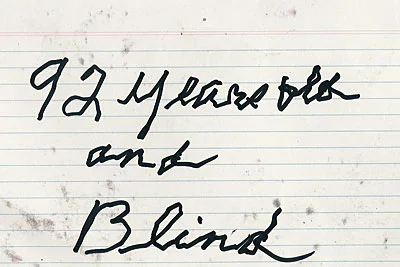 92 Years old
and
Blind